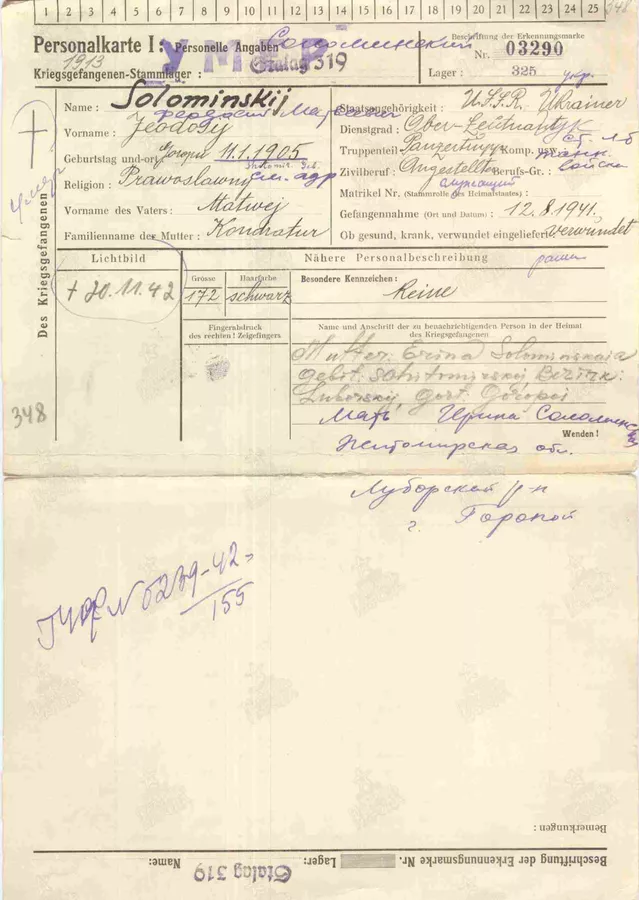 1 2 3 4 5 6 7 8 9 10 11 12 13 14 15 16 17 18 19 20 21 22 23 24 25 348
Personalkarte I: Personelle Angaben Соломинский
УМЕР
Beschriftung der Erkennungsmarke
Nr. 03290
1913
Kriegsgefangenen-Stammlager: Stalag 319
Lager: 325
укр.
Des Kriegsgefangenen
умер
Name: Solominskij
Staatsangehörigkeit: U.S.S.R. Ukrainer
Vorname: Feodosij
Dienstgrad: Ober-Leutnant
Geburtstag und -ort 11.1.1905
Truppenteil: Komp. usw.
Religion: Prawoslawny см. адр
Zivilberuf: Angestellter Berufs-Gr.:
служащий
Matrikel Nr. (Stammrolle des Heimatstaates):
Vorname des Vaters: Matwej
Gefangennahme (Ort und Datum): 12.8.1941.
Familienname der Mutter: Kondratur
Ob gesund, krank, verwundet eingeliefert: verwundet
ранен
Lichtbild
Nähere Personalbeschreibung
+ 20.11.42
Grösse
172
Haarfarbe
schwarz
Besondere Kennzeichen:
Keine
Fingerabdruck
des rechten! Zeigefingers
Name und Anschrift der zu benachrichtigenden Person in der Heimat
des Kriegsgefangenen
Mutter: Erina Solominskaja
gebit. Schitomirskij Bezirk.
Luborskij, Gort. Goropoi
348
Мать Ирина Соломинск
Wenden!
Житомирская обл.
Луборский р-н
г. Горопой
N 5239-42
155
Bemerkungen:
Beschriftung der Erkennungsmarke Nr. Lager: Stalag 319 Name: